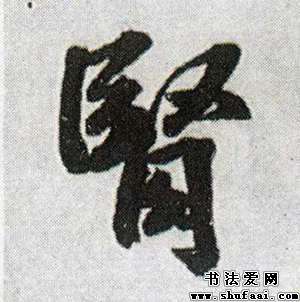 腎
书法爱网
www.shufaai.com